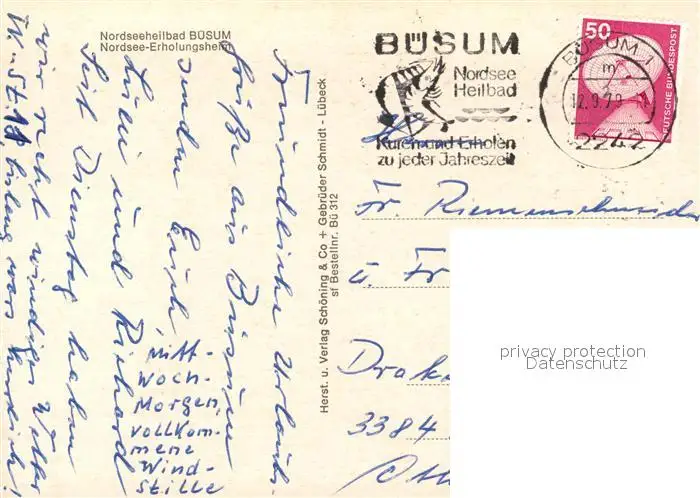 Nordseeheilbad BÜSUM
Nordsee-Erholungsheim
BÜSUM
Nordsee
Heilbad
Kuren und Erholen
zu jeder Jahreszeit
BÜSUM 1
m
12.9.79
2242
50
DEUTSCHE BUNDESPOST
Freundliche Urlaubs-
grüße aus Büsum
senden Euch
Luzi und Richard
Seit Dienstag haben
wir sehr windiges Wetter
W-St. 11 bislang wars herrlich!
Mitt-
woch-
Morgen,
vollkom-
mene
Wind-
stille
Herst. u. Verlag Schöning & Co + Gebrüder Schmidt - Lübeck
sf Bestellnr. Bü 312
Fr. Riemenschneider
u. Fr
Drak
3384
privacy protection
Datenschutz